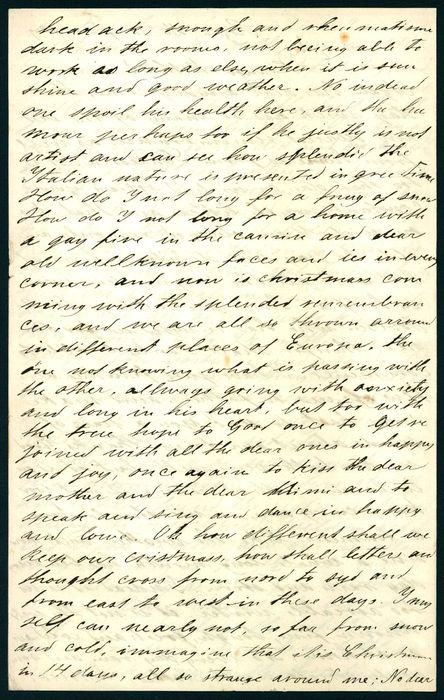 headack, snough and rheumatisme
dark in the rooms, not beeing able to
work as long as else, when it is sun
shine and good weather. No indead
one spoil his health here, and the hu
mour perhaps too if he justly is not
artist and can see how splendid the
Italian nature is presented in
How do I not long for a
How do I not long for a home with
a gay fire in the and dear
old wellknown faces and in every
corner, and now is christmass com
ming with the splended remembran
ces, and we are all so thrown arround
in different places of Europa, the
one not knowing what is passing with
the other, allways going with anxiety
and long in his heart, but too with
the true hope to God once to
joined with all the dear ones in happy
and joy, once again to kiss the dear
mother and the dear Mimi and to
speak and sing and dance in happy
and lowe. Oh how different shall we
keep our cristmass, how shall letters an
thought cross from nord to syd and
from east to west in these days. I my
self can nearly not, so far from snow
and cold, immagine that it is Christm
in 14 days, all so strange around me; No dear